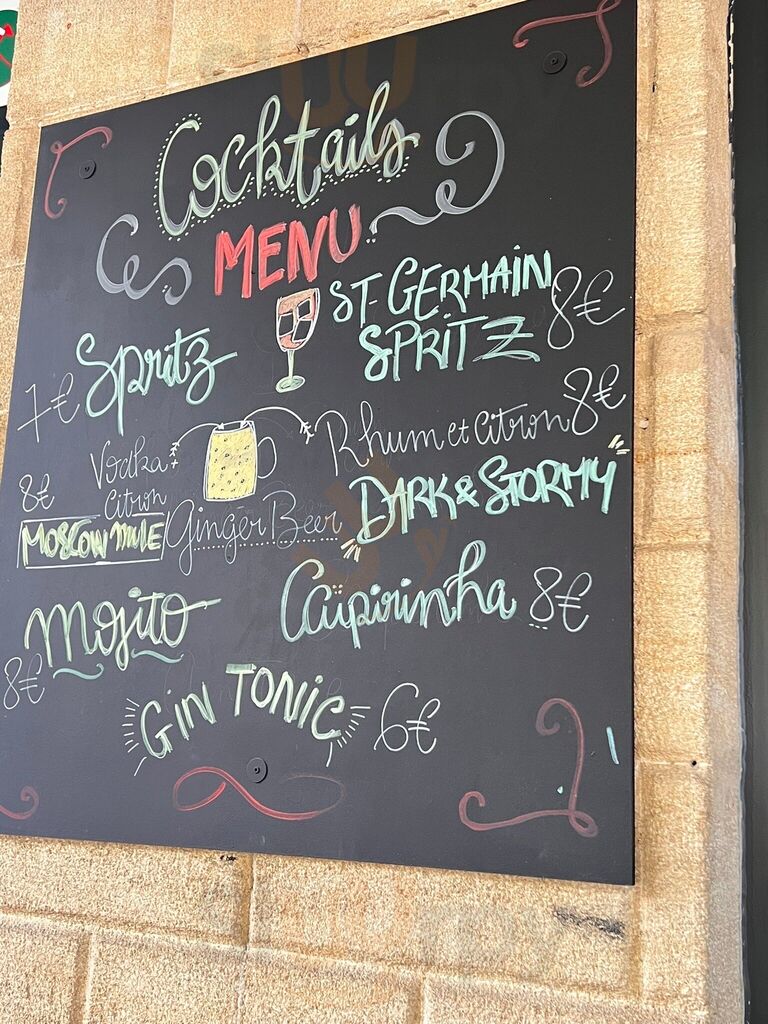 Cocktails
MENU
ST-GERMAIN
SPRITZ 8€
Spritz
7€
Rhum et Citron 8€
Vodka +
Citron
8€
DARK & STORMY
MOSCOW MULE Ginger Beer
Caipirinha 8€
Mojito
8€
GIN TONIC 6€